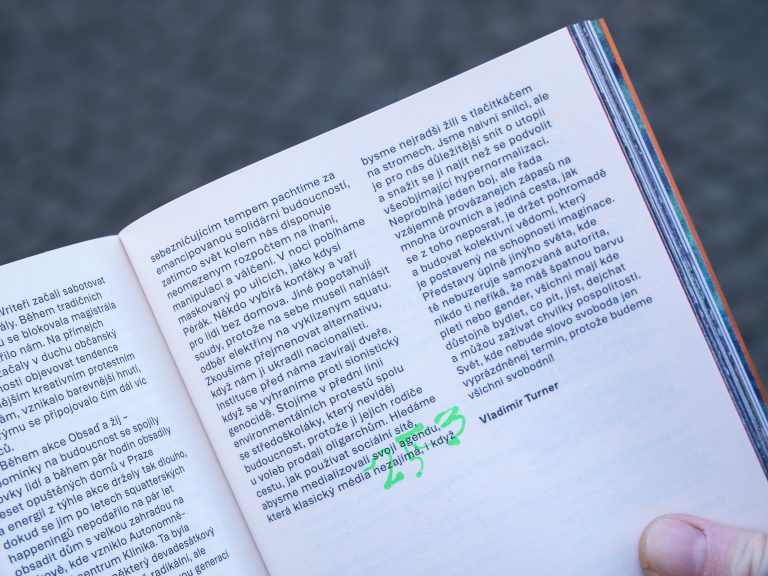 Vriteři začali sabotovat
ály. Během tradičních
u se blokovala magistrála
řilo nám. Na přímejch
začaly v duchu občanský
nosti objevovat tendence
nějším kreativním protestním
ám, vznikalo barevnější hnutí,
rýmu se připojovalo čím dál víc
ců.
Během akce Obsaď a žij –
pomínky na budoucnost se spojily
ovky lidí a během pár hodin obsadily
eset opuštěných domů v Praze
a energií z týhle akce držely tak dlouho,
dokud se jim po letech squatterských
happeningů nepodařilo na pár let
obsadit dům s velkou zahradou na
kově, kde vzniklo Autonomně-
í centrum Klinika. Ta byla
některý devadesátkový
radikální, ale
vou generaci
sebezničujícím tempem pachtíme za
emancipovanou solidární budoucností,
zatímco svět kolem nás disponuje
neomezeným rozpočtem na lhaní,
manipulaci a válčení. V noci pobíháme
maskovaný po ulicích, jako kdysi
Pérák. Někdo vybírá kontjáky a vaří
pro lidi bez domova. Jiné popotahují
soudy, protože na sebe museli nahlásit
odběr elektřiny na vyklizeným squatu.
Zkoušíme přejmenovat alternativu,
když nám ji ukradli nacionalisti.
Instituce před náma zavírají dveře,
když se vyhraníme proti sionistický
genocidě. Stojíme v přední linii
environmentálních protestů spolu
se středoškoláky, který neviděj
budoucnost, protože ji jejich rodiče
u voleb prodali oligarchům. Hledáme
cestu, jak používat sociální sítě,
abysme medializovali svoji agendu,
která klasický média nezajímá, i když
bysme nejradši žili s tlačítkáčem
na stromech. Jsme naivní snílci, ale
je pro nás důležitější snít o utopii
a snažit se ji najít než se podvolit
všeobjímající hypernormalizaci.
Neprobíhá jeden boj, ale řada
vzájemně provázaných zápasů na
mnoha úrovních a jediná cesta, jak
se z toho neposrat, je držet pohromadě
a budovat kolektivní vědomí, který
je postavený na schopnosti imaginace.
Představy úplně jinýho světa, kde
tě nebuzeruje samozvaná autorita,
nikdo ti neříká, že máš špatnou barvu
pleti nebo gender, všichni mají kde
důstojně bydlet, co pít, jíst, dejchat
a můžou zažívat chvilky pospolitosti.
Svět, kde nebude slovo svoboda jen
vyprázdněnej termín, protože budeme
všichni svobodní!
Vladimír Turner
253